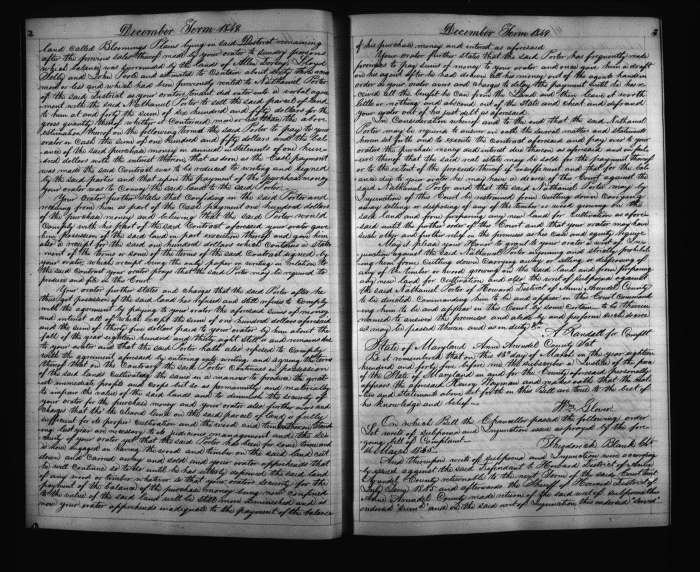 2
December Term 1849
land called Blooming Plains lying in said District remaining
after the previous sales thereof made by your orator to sundry persons
which balance was bounded by the lands of Allen Dorsey, Lloyd
Selby and John Poole and estimated to contain about sixty three acres
more or less and which had been previously rented to Nathaniel Porter
of the said District as your orators tenant did enter into a verbal agree
ment with the said Nathaniel Porter to sell the said parcel of land
to him at and for the sum of six hundred and fifty dollars for the
gross quantity thereof whether it contained more or less than the above
estimation thereof on the following terms the said Porter to pay to your
orator in Cash the sum of one hundred and fifty dollars and the bal
ance of the said purchase money in annual instalments of one hun
dred dollars with the interest thereon, that as soon as the Cash payment
was made the said Contract was to be reduced to writing and signed
by the said parties and that upon the payment of the purchase money
your orator was to Convey the said land to the said Porter.
Your Orator further States that Confiding in the said Porter and
receiving from him as part of the Cash payment one hundred dollars
of the purchase money and believing that the said Porter would
Comply with his part of the said Contract aforesaid your orator gave
him possession of the said land in part execution thereof and gave him
also a receipt for the said one hundred dollars which contains a state
ment of the terms or some of the terms of the said Contract signed by
your orator, which receipt being the only paper writing in relation to
the said Contract your orator prays that the said Porter may be required to
produce and file in this Court
Your orator further States and charges that the said Porter after he
thus got possession of the said land has refused and still refuses to Comply
with the agreement by paying to your orator the aforesaid sums of money
and interest all of which except the sum of one hundred dollars aforesaid
and the sum of thirty five dollars paid to your orator by him about the
fall of the year eighteen hundred and thirty eight still is and remains due
to your orator and that the said Porter hath also refused to Comply
with the agreement aforesaid by entering into writing and signing the terms
thereof that on the Contrary the said Porter Continues in possession
of the said lands Cultivating the same in a manner to produce the great
est immediate profits and crops but so as permanently and materially
to impair the value of the said lands and to diminish the security of
your orator for the purchase money and your orator also further avers and
charges that the the cleared land on the said parcel of land is fully
sufficient for its proper cultivation and the wood and timber
year are necessary to its judicious management and the se
curity of your orator yet that the said Porter has been for some time
is now engaged in clearing the wood and timber on the said land cut
down and carried away and sold and your orator apprehends that
he will continue so to do until he has entirely deprived the said land
of any wood or timber whatever so that your orators security for the
payment of the balance of the purchase money being now confined
to the value of the said land will be still more diminished and is
now your orator apprehends inadequate to the payment of the balance
December Term 1849
3
of his purchase money and interest as aforesaid
Your orator further states that the said Porter has frequently made
promises to pay sums of money to your orator and once gave him a draft
on his agent after he had drawn all his money out of the agents hands in
order to your orator and charges to delay the payment until he has re
ceived all the benefit he can from the Land and then leave it worth
little or nothing and abscond out of the State and cheat and defraud
your orator out of his just debt as aforesaid.
In Consideration whereof and to the end that the said Nathaniel
Porter may be required to answer on oath the several matters and statements
herein set forth and to execute the Contract aforesaid and pay over to your
orator the purchase money and interest due thereon as aforesaid and on fail
ure thereof that the said real estate may be sold for the payment thereof
or to the extent of the proceeds thereof if insufficient and that for the bal
ance due to your orator he may have a decree of this Court against the
said Nathaniel Porter and that the said Nathaniel Porter may by
Injunction of this Court be restrained from cutting down Carrying
away selling or disposing of any of the timber or wood growing on the
said land and from preparing any new land for Cultivation as afore
said until the further order of the Court and that your orator may have
such other and further relief in the premises as his case and equity require
May it please your Honor to grant to your orator a writ of In
junction against the said Nathaniel Porter enjoining and strictly prohibit
ing him from cutting down Carrying away or selling or disposing of
any of the timber or wood growing on the said land and from preparing
any new land for cultivation and also the writ of subpoena against
the said Nathaniel Porter of Howard District of Anne Arundel County
to be directed Commanding him to be and appear in this Court Command
ing him to be and appear in this Court by some certain to be therein
named to answer the premises and abide by and perform such decree
as may be passed therein and as in duty &c
A Randall for Complt
State of Maryland Anne Arundel County Sct
Be it remembered that on this 13th day of March in the year eighteen
hundred and forty five before me the subscriber a Justice of the peace
of the State of Maryland in and for the County aforesaid personally
appears the aforesaid Harvey Wayman and makes oath that the mat
ters and statements above set forth in this Bill are true to the best of
his knowledge and belief
Wm Glover
On which Bill the Chancellor passed the following order
Let writ of subpoena and Injunction issue as prayed by the fore
going bill of Complaint
March 1845
Theodorick Bland Chr
And thereupon writ of subpoena and Injunction were according
ly issued against the said Defendant to Howard District of Anne
Arundel County returnable to the next Term of the said Court
July Term 1845 and afterwards the Sheriff of Howard District of
Anne Arundel County made return of the said writ of subpoena thus
endorsed "Sum&d" and on the said writ of Injunction thus endorsed "Served"